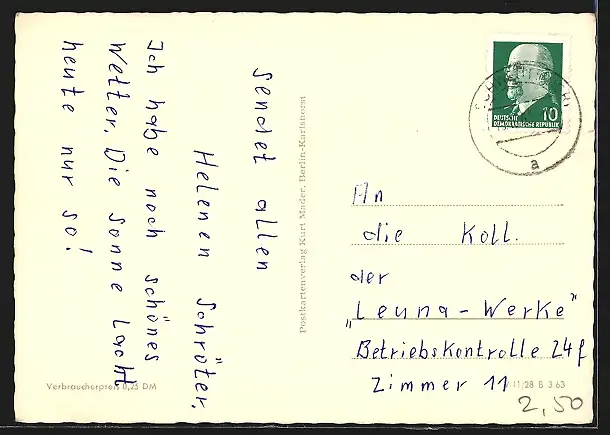 Ich habe noch schönes
Wetter. Die Sonne Lacht
heute nur so!
Sendet allen
Helenen Schröter.
Postkartenverlag Kurt Mader, Berlin-Karlshorst
DEUTSCHE
DEMOKRATISCHE REPUBLIK
10
a
An
die Koll.
der
"Leuna-Werke"
Betriebskontrolle 24f
Zimmer 11
Verbraucherpreis 0,25 DM
11,28 B 3 63
2,50